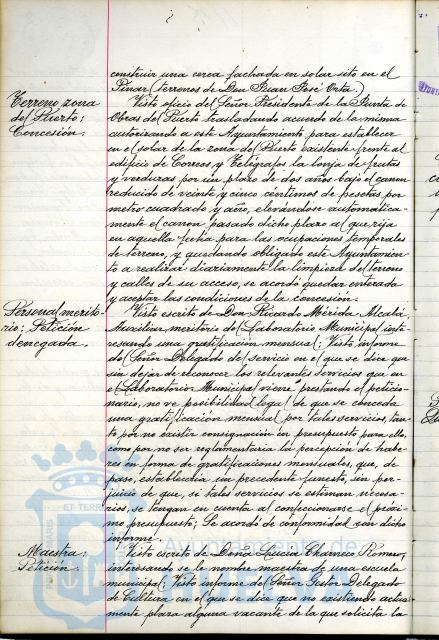 construir una cerca fachada en solar sito en el
Pinar (terrenos de Don Juan José Orta.)
Terreno zona
del Puerto:
Concesión.
Visto oficio del Señor Presidente de la Junta de
Obras del Puerto trasladando acuerdo de la misma
autorizando a este Ayuntamiento, para establecer
en el solar de la zona del Puerto existente frente al
edificio de Correos y Telégrafos la lonja de frutas
y verduras, por un plazo de dos años bajo el canon
reducido de veinte y cinco céntimos de pesetas por
metro cuadrado y año, elevándose automática-
mente el canon pasado dicho plazo al que rija
en aquella fecha para las ocupaciones temporales
de terreno, y quedando obligado este Ayuntamien-
to a realizar diariamente la limpieza del terreno
y calles de su acceso, se acordó quedar enterada
y aceptar las condiciones de la concesión.
Personal merito-
rio: Petición
denegada.
Visto escrito de Don Ricardo Mérida Alcalá,
Auxiliar meritorio del Laboratorio Municipal inte-
resando una gratificación mensual; Visto informe
del Señor Delegado del servicio en el que se dice que
sin dejar de reconocer los relevantes servicios que en
el Laboratorio Municipal viene prestando el peticio-
nario, no ve posibilidad legal de que se conceda
una gratificación mensual por tales servicios, tan-
to por no existir consignación en presupuesto para ello,
como por no ser reglamentaria la percepción de habe-
res en forma de gratificaciones mensuales, que, de
paso, establecería un precedente funesto, sin per-
juicio de que, si tales servicios se estiman necesa-
rios, se tengan en cuenta al confeccionarse el próxi-
mo presupuesto; Se acordó de conformidad con dicho
informe.
Maestra:
Petición.
Visto escrito de Doña Lucía Romero,
interesando se le nombre maestra de una escuela
municipal; Visto informe del Señor Gestor Delegado
de Cultura en el que se dice que no existiendo actual-
mente plaza alguna vacante de la que solicita la